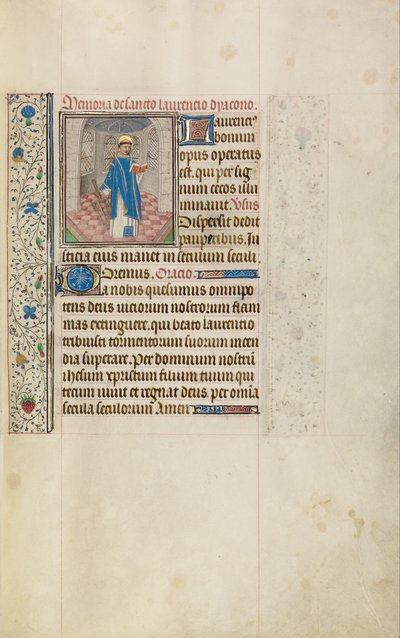 Memoria de sancto laurencio dyacono.
Laurenciꝰ
bonum
opus operatus
est. qui per sig
num cecos illu
minauit. Vsus
Dispersit dedit
pauperibus. Iu
sticia eius manet in seculum seculi.
Oremus. Oracio.
Da nobis quesumus omnipo
tens deus viciorum nostrorum flam
mas extinguere, qui beato laurencio
tribuisti tormentorum suorum incen
dia superare. Per dominum nostrū
ihesum xpristum filium tuum qui
tecum viuit et regnat deus per omia
secula seculorum Amen